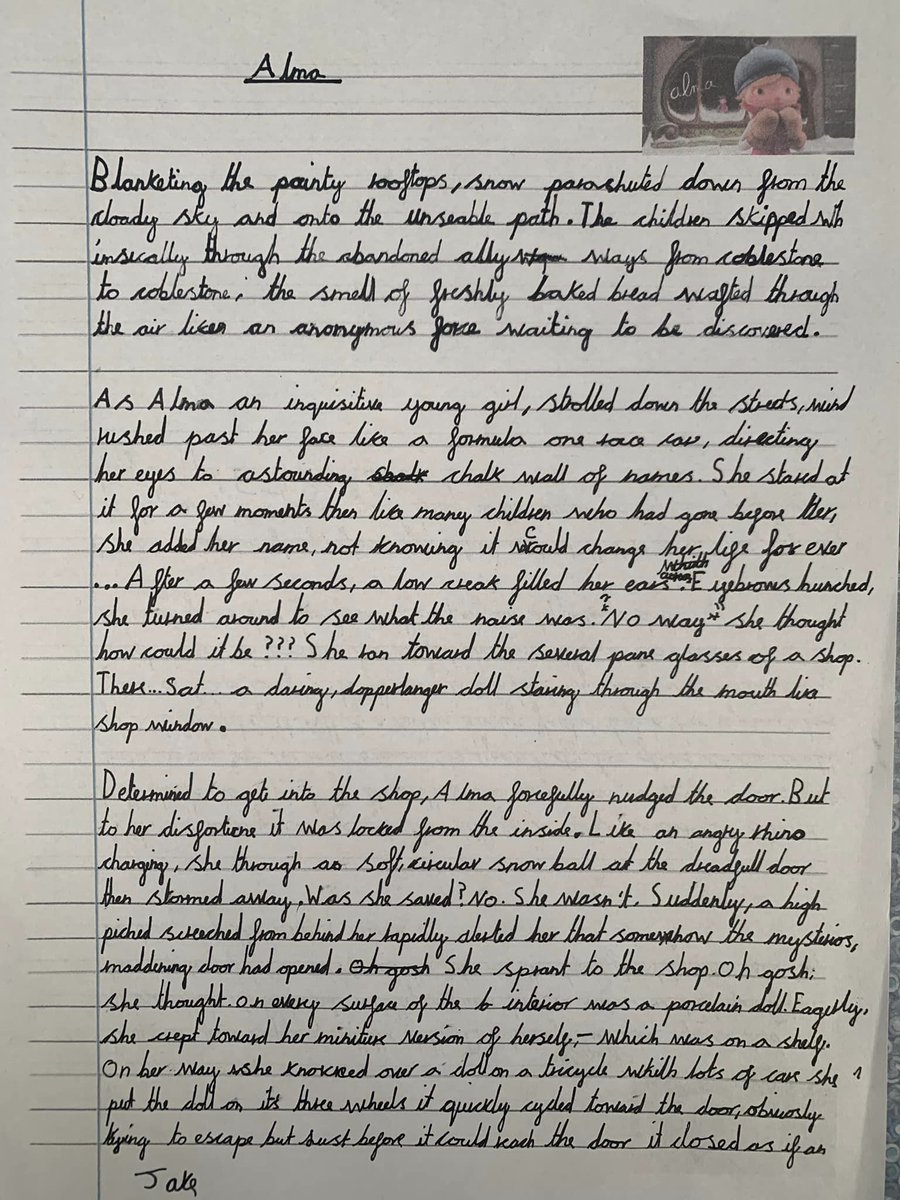 Alma
alma
Blanketing the pointy rooftops, snow parashuted down from the
cloady sky and onto the unseable path. The children skipped wih
insically through the abandoned ally ways from coblestone
to coblestone; the smell of freshly baked bread wafted through
the air like an anonymous force waiting to be discovered.
As Alma an inquisitive young girl, strolled down the streets, wind
rushed past her face like a formula one race car, directing
her eyes to astounding chalk wall of names. She stared at
it for a few moments then like many children who had gone before her,
she added her name, not knowing it could change her life for ever
... After a few seconds, a low creak filled her ears. Eyebrows hunched,
she turned around to see what the noise was. "No way" she thought
how could it be ??? She ran toward the several pane glasses of a shop.
There... Sat... a daring, dopperlanger doll staring through the mouth lia
shop window.
Determined to get into the shop, Alma forcefully nudged the door. But
to her disfortiene it was locked from the inside. Like an angry rhino
charging, she through a soft, circular snow ball at the dreadfull door
then stormed away. Was she saved? No. She wasn't. Suddenly, a high
piched screeched from behind her rapidly alerted her that somewhow the mysterios,
maddening door had opened. Oh gosh She sprant to the shop. Oh gosh;
she thought. on every surface of the interior was a porcelain doll. Eagerlly.
she crept toward her miniture version of herself,- Which was on a shelf.
On her way she knocked over a doll on a tricycle whith lots of care she
put the doll on its three wheels it quickly cycled toward the door, obviosly
trying to escape but sust before it could reach the door it closed as if an
Jake